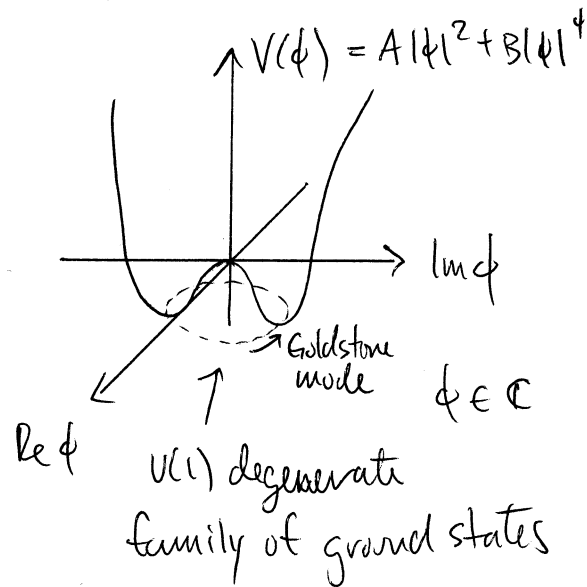 V(ϕ) = A|ϕ|² + B|ϕ|⁴
Im ϕ
Goldstone
mode
ϕ ∈ ℂ
Re ϕ
U(1) degenerate
family of ground states